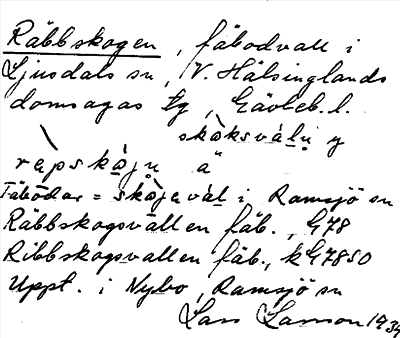 Räbbskogen, fäbodvall i
Ljusdals sn, V. Hälsinglands
domsagas tg, Gävleb. l.
skòksvál̥u y
ræpskòju ä
Fäbodar = skòjevál i Ramsjö sn
Räbbskogsvallen fäb., G78
Ribbskogsvallen fäb., kG7850
Uppt. i Nybo, Ramsjö sn
Lars Larsson 1934